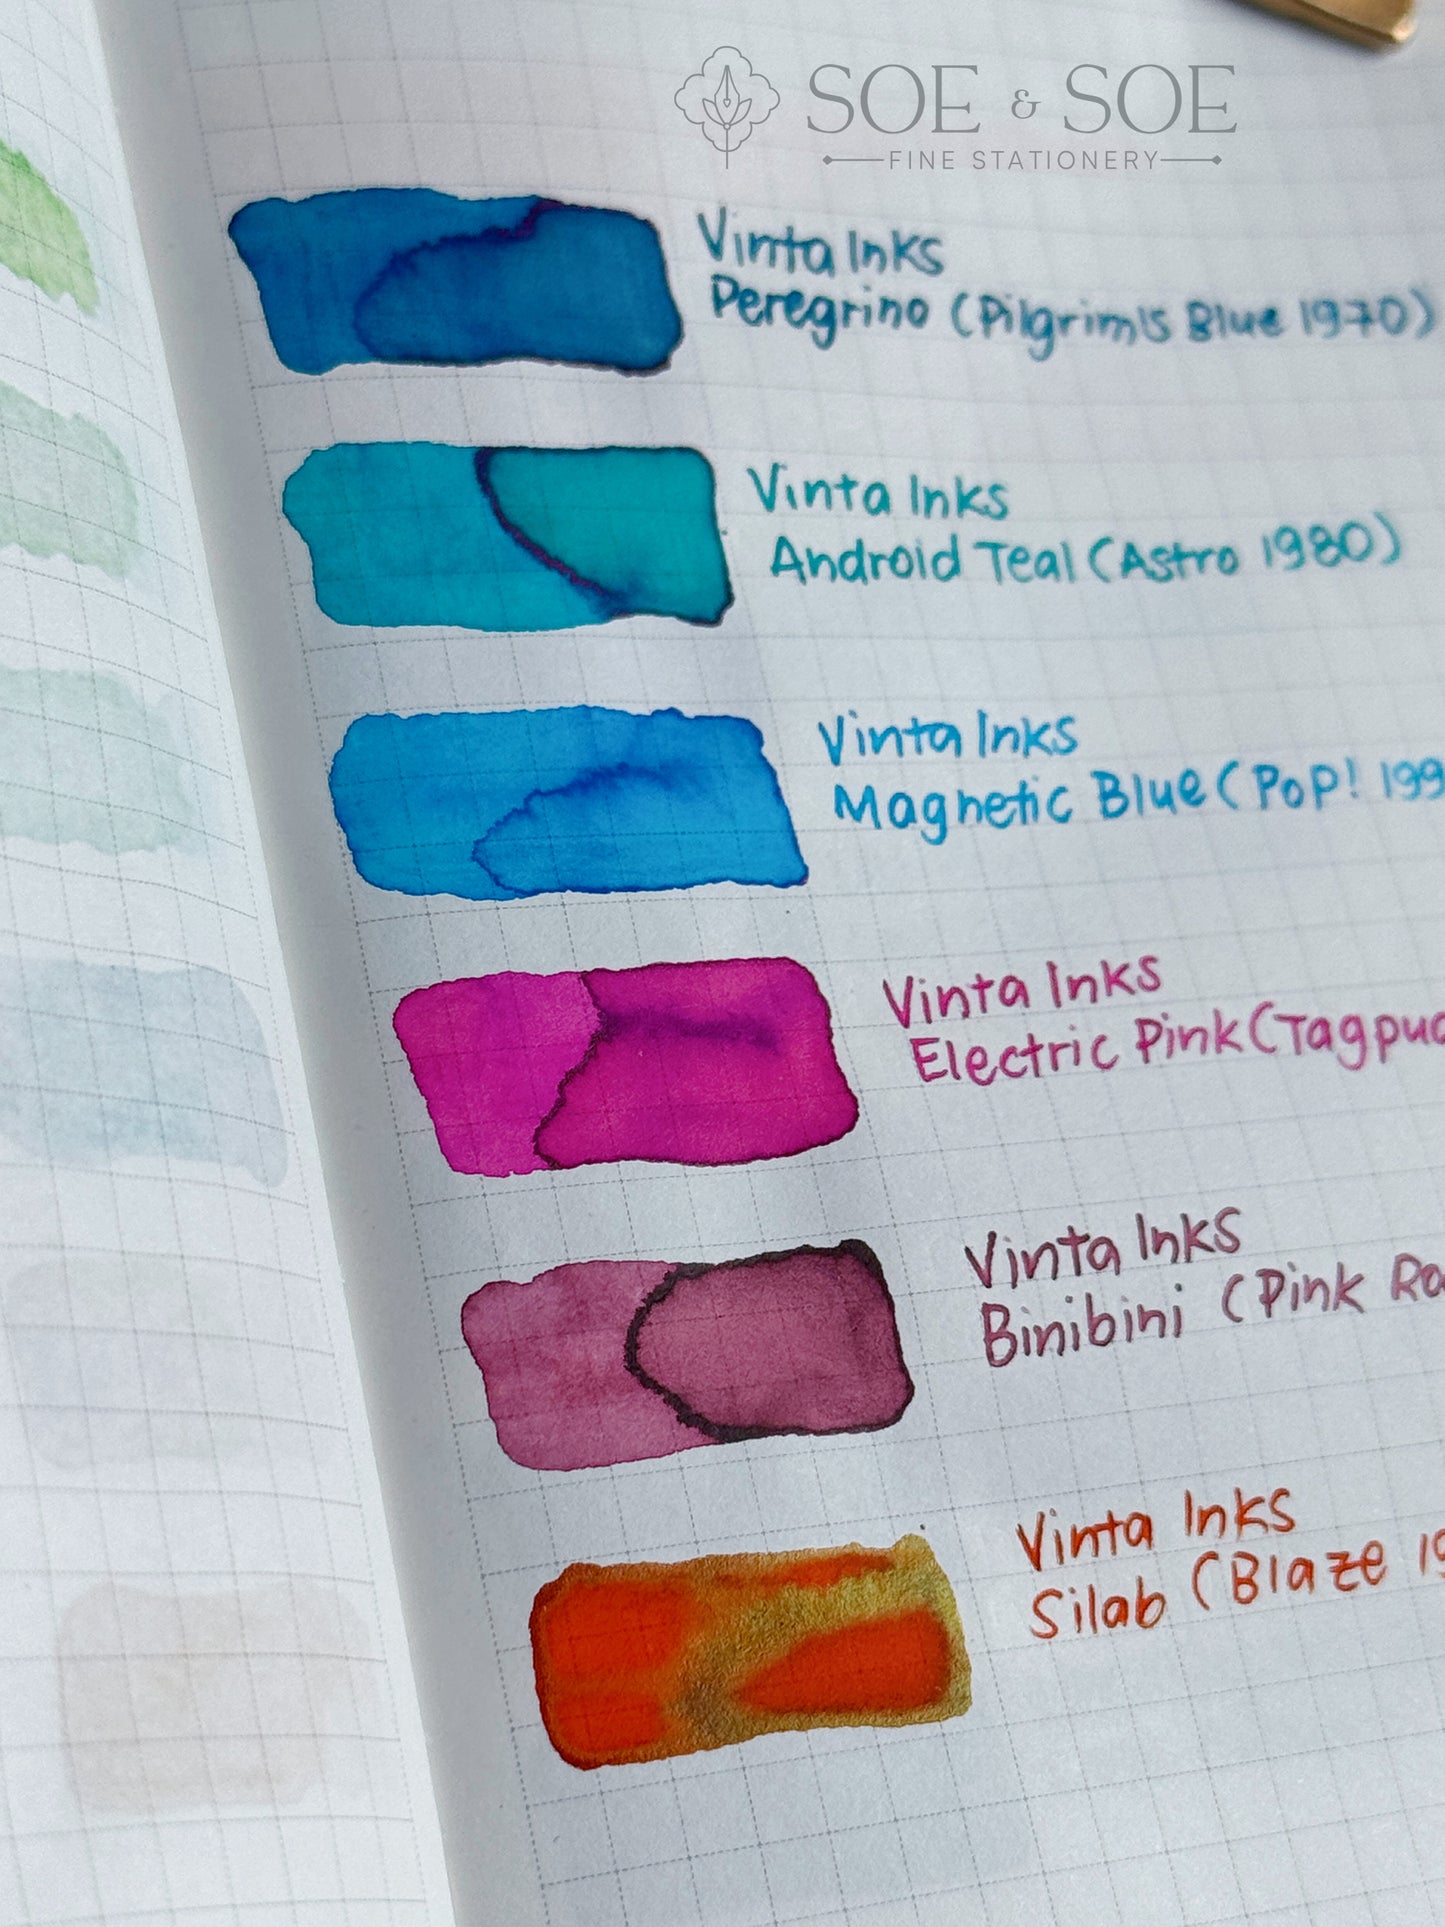 SOE & SOE
FINE STATIONERY
Vinta Inks
Peregrino (Pilgrim's Blue 1970)
Vinta Inks
Android Teal (Astro 1980)
Vinta Inks
Magnetic Blue (Pop! 199
Vinta Inks
Electric Pink (Tagpu
Vinta Inks
Binibini (Pink Ro
Vinta Inks
Silab (Blaze 19